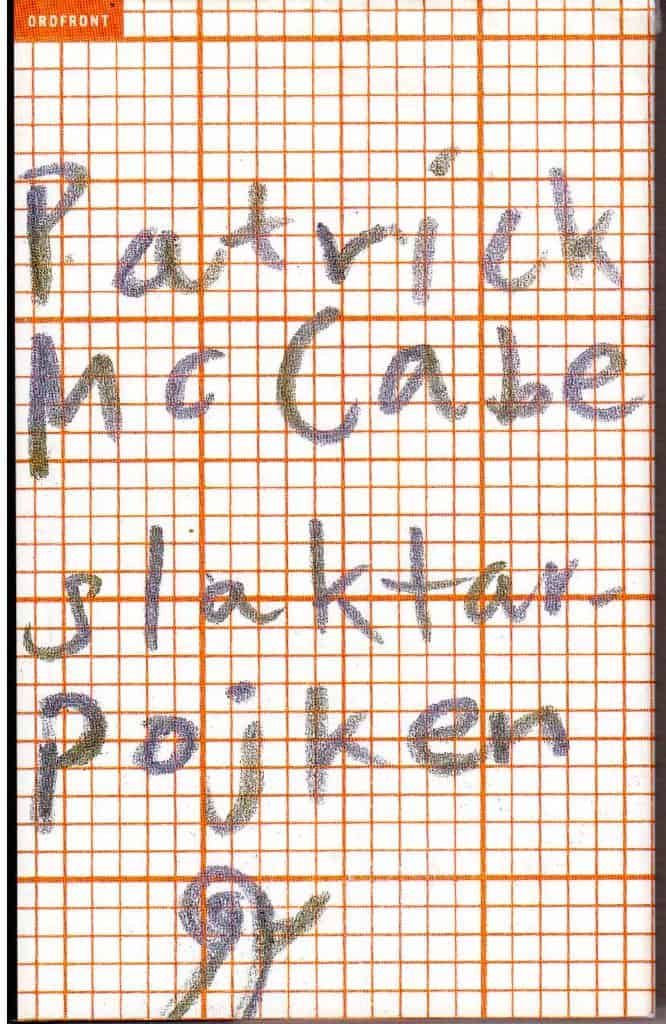 ORDFRONT
Patrick
McCabe
slaktar-
Pojken